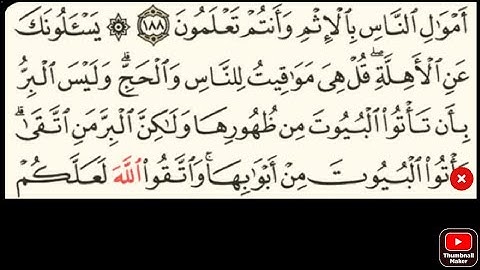 أَمْوَٰلِ ٱلنَّاسِ بِٱلْإِثْمِ وَأَنتُمْ تَعْلَمُونَ ١٨٨ ۞ يَسْـَٔلُونَكَ
عَنِ ٱلْأَهِلَّةِ ۖ قُلْ هِىَ مَوَٰقِيتُ لِلنَّاسِ وَٱلْحَجِّ ۗ وَلَيْسَ ٱلْبِرُّ
بِأَن تَأْتُوا۟ ٱلْبُيُوتَ مِن ظُهُورِهَا وَلَٰكِنَّ ٱلْبِرَّ مَنِ ٱتَّقَىٰ ۗ
وَأْتُوا۟ ٱلْبُيُوتَ مِنْ أَبْوَٰبِهَا ۚ وَٱتَّقُوا۟ ٱللَّهَ لَعَلَّكُمْ
Thumbnail
Maker